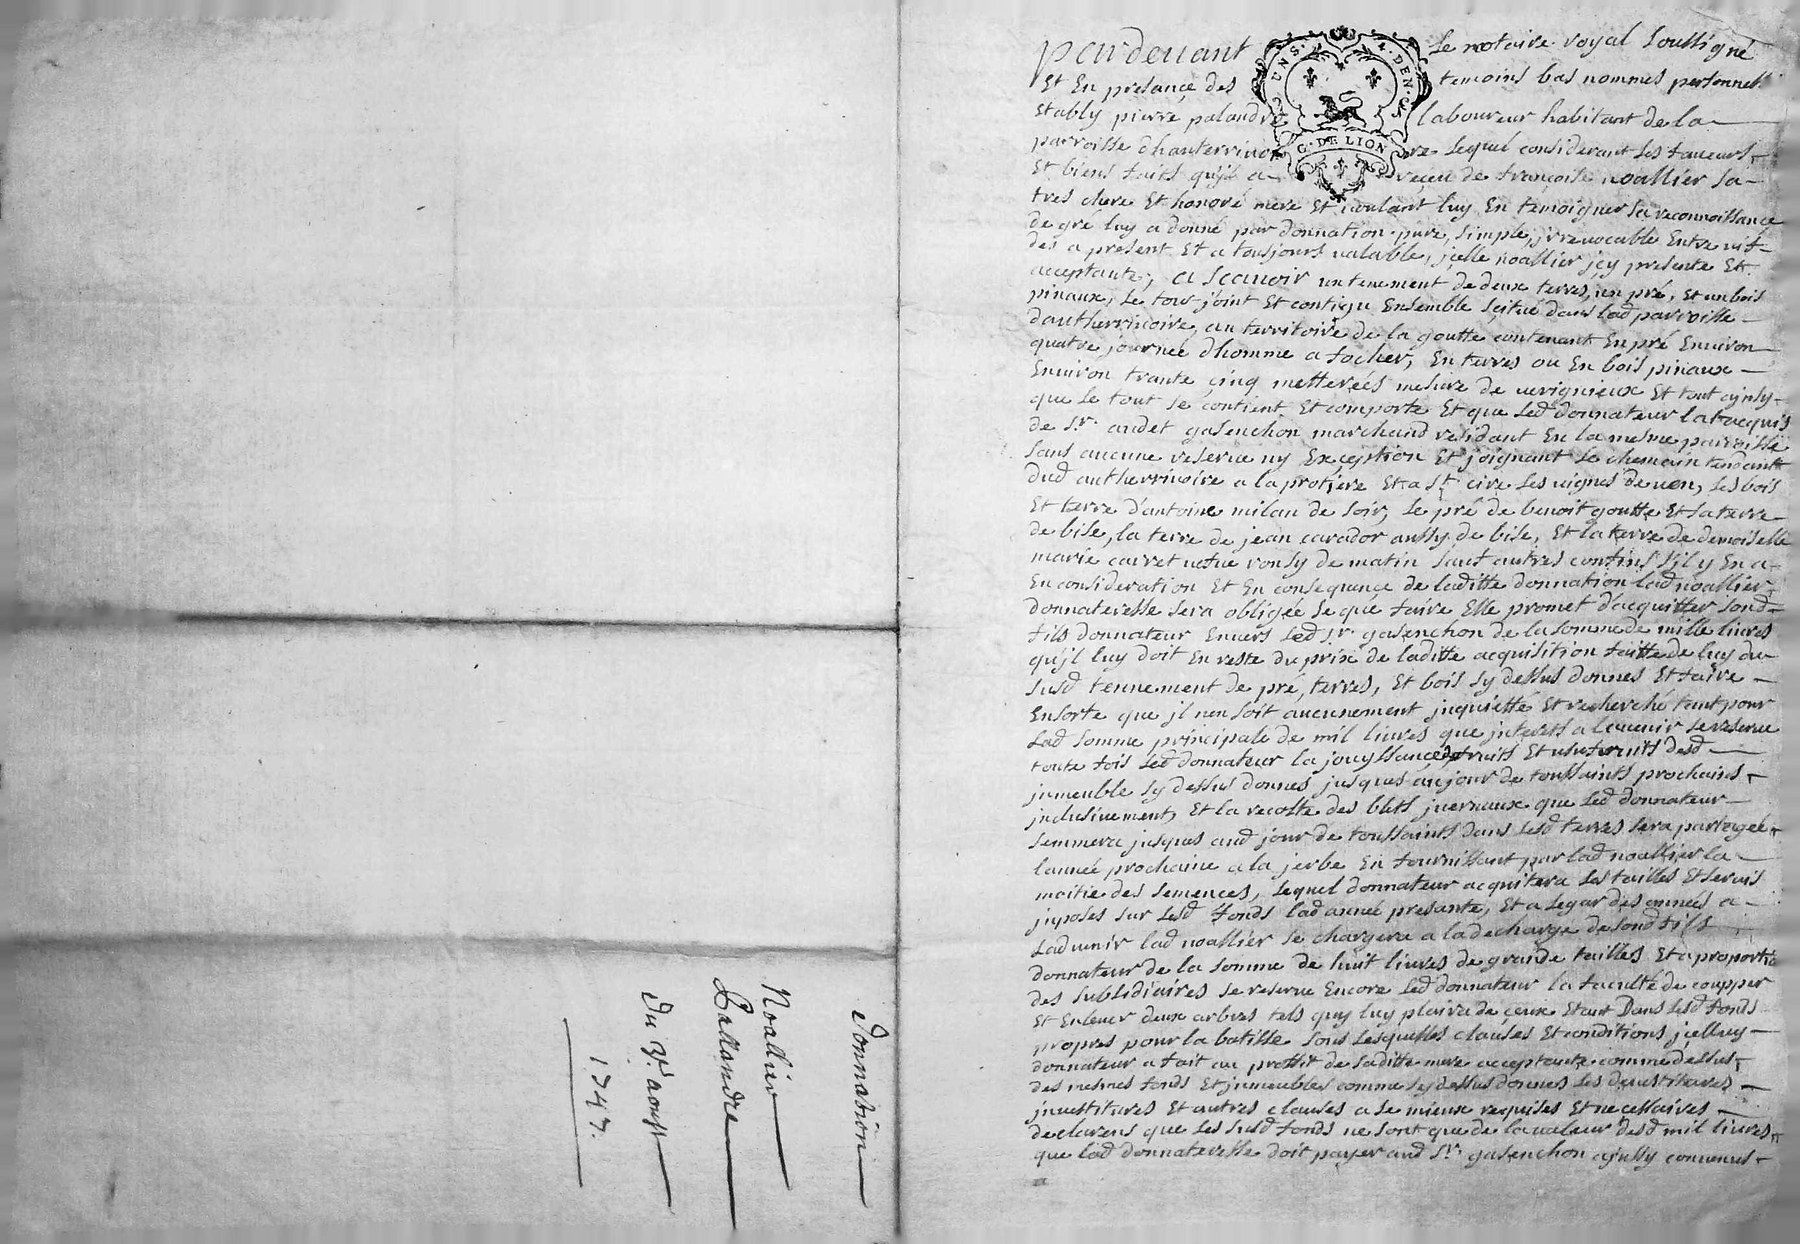 donnation
Noallier
Pallandre
du 7e. aoust
1747.
pardevant le notaire royal soussigné
Et En presance des temoins bas nommes personnel
Etably pierre palandre laboureur habitant de la
parroisse dhauterrivoire lequel considerant les faveurs
Et biens faits qu'jl a reçeu de françoise noallier sa
tres chere Et honoré mere Et voulant luy En temoigner sa reconnoissance
de gré luy a donné par donnation pure, simple, jrrevocable Entre vif
des a present Et a tousjours valable, jçelle noallier jcy presente Et
acceptante, a scavoir un tenement de deux terres, un pré, Et un bois
pinaux, le tout joint Et contigu Ensemble sçitué dans lad parroisse
dautherrivoire, au territoire de la goutte contenant En pré Environ
quatre journée dhomme a focher, En terres ou En bois pinaux
Environ trante çinq metterées mesure de verignieux Et tout ajnsy
que le tout se contient Et comporte Et que led donnateur la acquis
de Sr. audet gasenchon marchand residant En la mesme parroisse
sans aucune reserve ny Exception Et joignant le chemain tendant
dud autherrivoire a la protiere Et a St cire les vignes de ven, les bois
Et terre d'antoine milan de soir, le pré de benoit goutte Et sa terre
de bise, la terre de jean carador aussy de bise, Et la terre de demoiselle
marie cairet vefve ronsy de matin sauf autres confins s'jl y En a
En consideration Et En consequance de laditte donnation lad noallier
donnateresse sera obligée se que faire Elle promet d'acquitter sond
fils donnateur Envers led sr. gasenchon de la somme de mille livres
qu'jl luy doit En reste du prix de laditte acquisition faitte de luy du
susd tennement de pré, terres, Et bois sy dessus donnes Et faire
Ensorte que jl nen soit aucunement jnquietté Et recherché tant pour
lad somme principale de mil livres que jnterets a l'avenir se reserve
toute fois led donnateur la jouyssance de fruits Et usufruits desd
jmeuble sy dessus donnes jusques au jour de toussaints prochains
jnclusivement, Et la recolte des bleds jvernaux que led donnateur
semmera jusques aud jour de toussaints dans lesd terres sera partagée
lanneé prochaine a la jerbe En fournissant par lad noallier la
moitie des semences, lequel donnateur acquitera les tailles Et servis
jnposes sur lesd fonds lad anneé presante, Et a legar des anneés a
ladvenir lad noallier se chargera a la decharge de sond fils
donnateur de la somme de huit livres de grande tailles Et a proportion
des subsidiaires se reserve Encore led donnateur la faculté de coupper
Et Enlever deux arbres tels quy luy plaira de çeux Etant Dans lesd fonds
propres pour la batisse sous lesquelles clauses Et conditions jcelluy
donnateur a fait au proffit de saditte mere acceptante comme dessus
des mesmes fonds Et jmmeubles comme sy dessus donnes les devestitures
jnvestitures Et autres clauses a se mieux requises Et necessaires
declarens que les susd fonds ne sont que de la valeur desd mil livres
que lad donnateresse doit payer aud Sr. gasenchon ajnssy convenus
a
C. UNS. A. 4. DEN. CS
G. DE LION